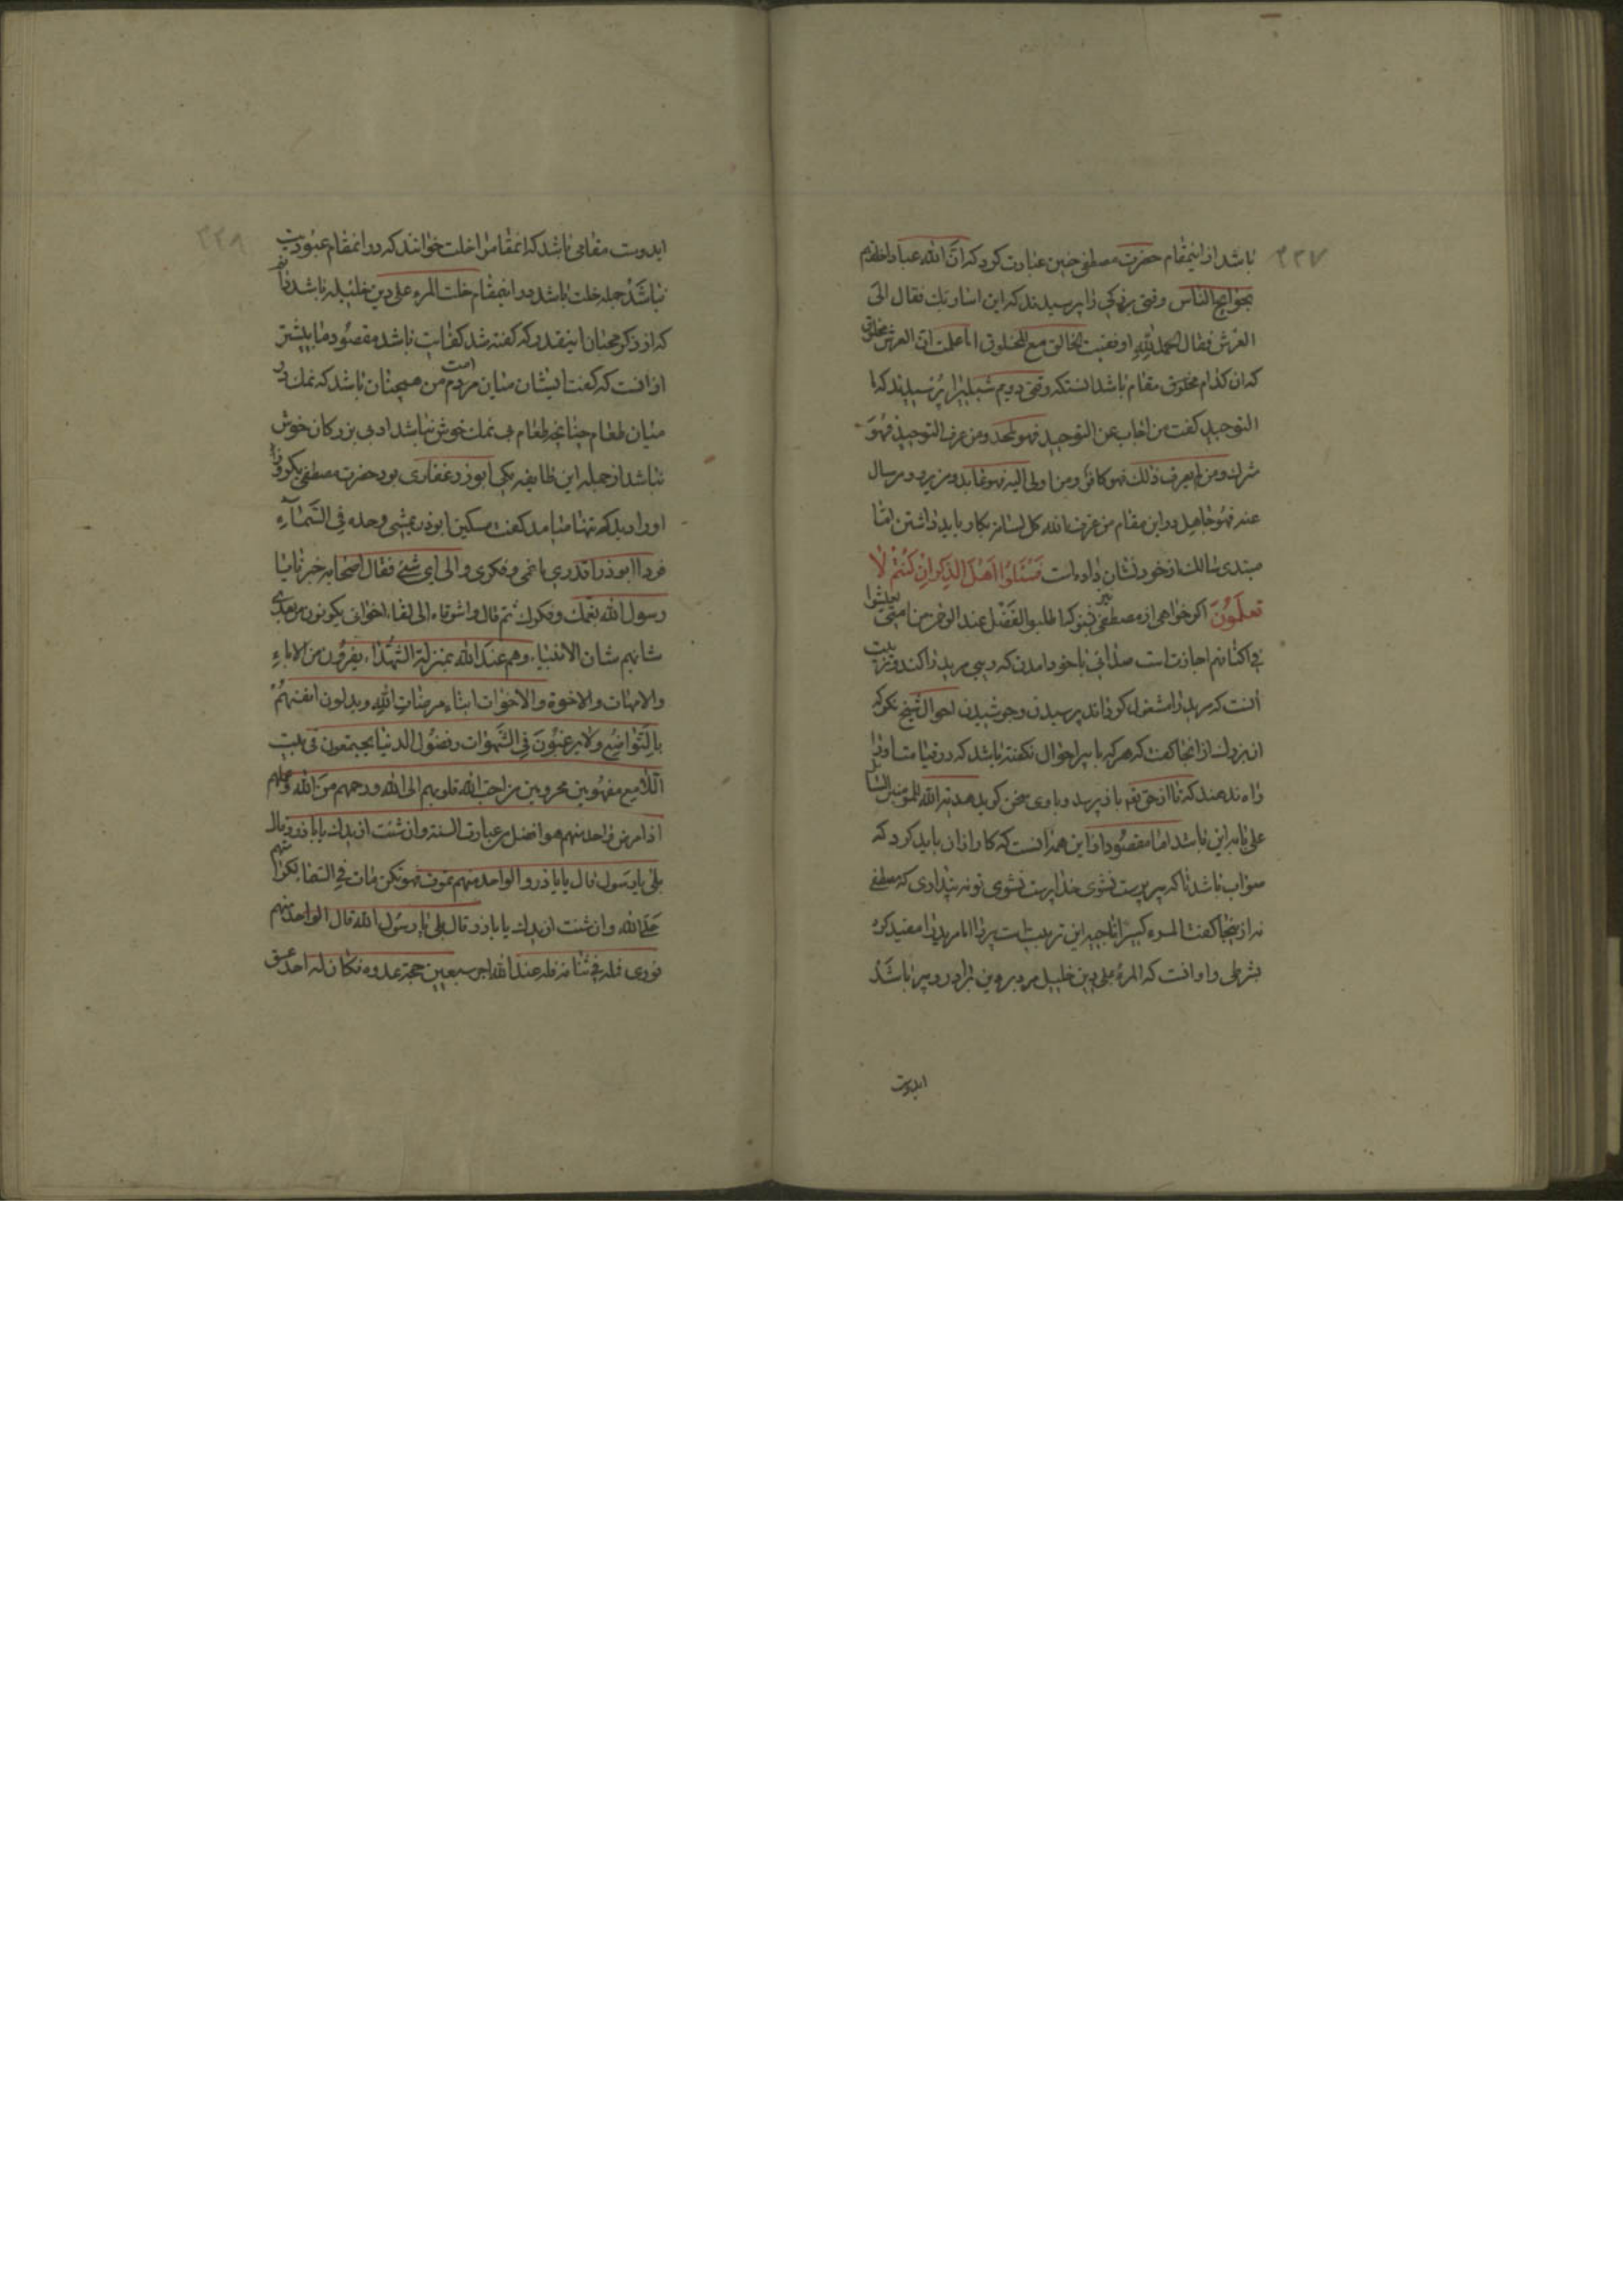 ۲۲۷
باشد از اینمقام حضرت مصطفی چنین عبارت کرد که ان الله عبادا خلقهم
بحوایج الناس وقتی بزرکی را پرسیدند که این اساء ربك فقال الی
العرش فقال الحمد لله اوفقیت الخالق مع المخلوق اما علمت ان العرش مخلوق
که ان کدام مخلوق مقام باشد وقتی دویم شبلی را پرسیدند که ما
التوحید کفت من اجاب عن التوحید فهو ملحد ومن عرف التوحید فهو
مشرك ومن لم یعرف ذلك فهو کافر ومن اومی الیه فهو عابد ومن سال
عنه فهو جاهل در این مقام من عرف الله کل لسانه بکار باید داشتن اما
مبتدی سالك از خود نشان داده است فسئلوا اهل الذکر ان کنتم لا
تعلمون اکر خواهی از مصطفی نیز بشنو که اطلبوا الفضل عند الرحماء من امتی تعیشوا
فی اکنافهم اجازت است صلای با خود امدن که پیر مرید را کند و تربیت
آنست که مرید را مشغول کرداند پرسیدن احوال شیخ مکر که
ان بزرك از اینجا کفت که هر که با پیر احوال نکفته باشد که در قیامت او را
راه ندهند که تا از حق تع باز پرسد و با وی سخن کوید هدیة الله للمومن السائل
علی بابه این باشد اما مقصود از این همه آنست که کار از ان باید کرد که
صواب باشد تا که پیر پرست نشوی خدا پرست نشوی تو نه پنداری که مصطفی
نه از اینجا کفت المرء کبیر باخیه این تربیت است پیر را اما مرید را مقید کرد
بشرطی و او انست که المرء علی دین خلیله مرد بر دین برادر و پیر باشد
ایدوست
۲۲۸
ایدوست مقامی باشد که انمقام را خلت خوانند که در انمقام عبودیت
نباشد جمله خلت باشد در اینمقام خلت المرء علی دین خلیله باشد
که از ذکر محبان اینقدر که کفته شد کفایت باشد مقصود ما بیشتر
از انست که کفت ایشان میان مردم امت من همچنان باشد که نمك در
میان طعام چنانچه طعام بی نمك خوش نباشد ادبی بزرکان خوش
نباشد از جمله این طایفه یکی ابوذر غفاری بود حضرت مصطفی یکروز
او را دید که تنها میامد کفت مسکین ابوذر یمشی وحده فی السماء
فردا ابوذر اتدری ما غمی وفکری والی ای شئ فقال اصحابه خبرنا یا
رسول الله بغمك وفکرك ثم قال واشوقاه الی لقاء اخوانی یکونون من بعدی
شانهم شان الانبیاء وهم عند الله بمنزلة الشهداء یفرون من الاباء
والامهات والاخوة والاخوات ابتغاء مرضات الله ویدلون انفسهم
بالتواضع ولا یرغبون فی الشهوات وفضول الدنیا یجتمعون فی بیت
مهمومین محزونین من احب الله قلوبهم الی الله وروحهم من الله وعلمهم
اذا مرض واحد منهم هو افضل من عبادة السنة وان شئت ازیدك یا باذر قال
بلی یا رسول قال یا باذر والواحد منهم یموت فهو کمن مات فی السماء
علی الله وان شئت ازیدك یا باذر قال بلی یا رسول الله قال الواحد منهم
فله عند الله اجر سبعین حجة وغزوة فکان له اجر عتق